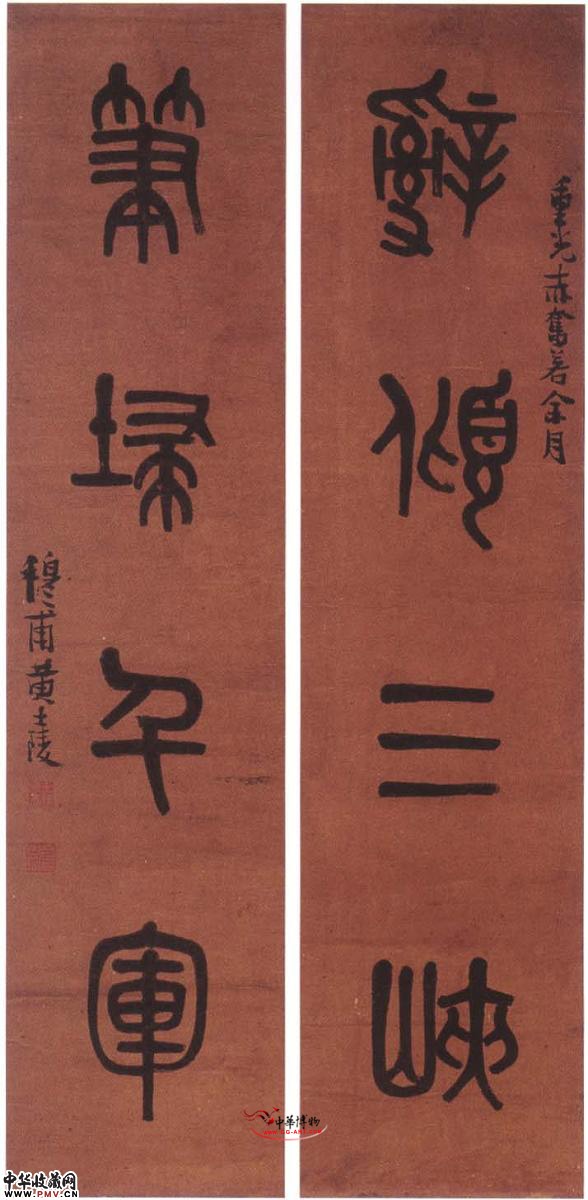 辭傾三峽
重光赤奮若余月
筆埽千軍
穆甫黃士陵
中華博物
WWW.GG-ART.COM
中华收藏网
WWW.PMV.CN